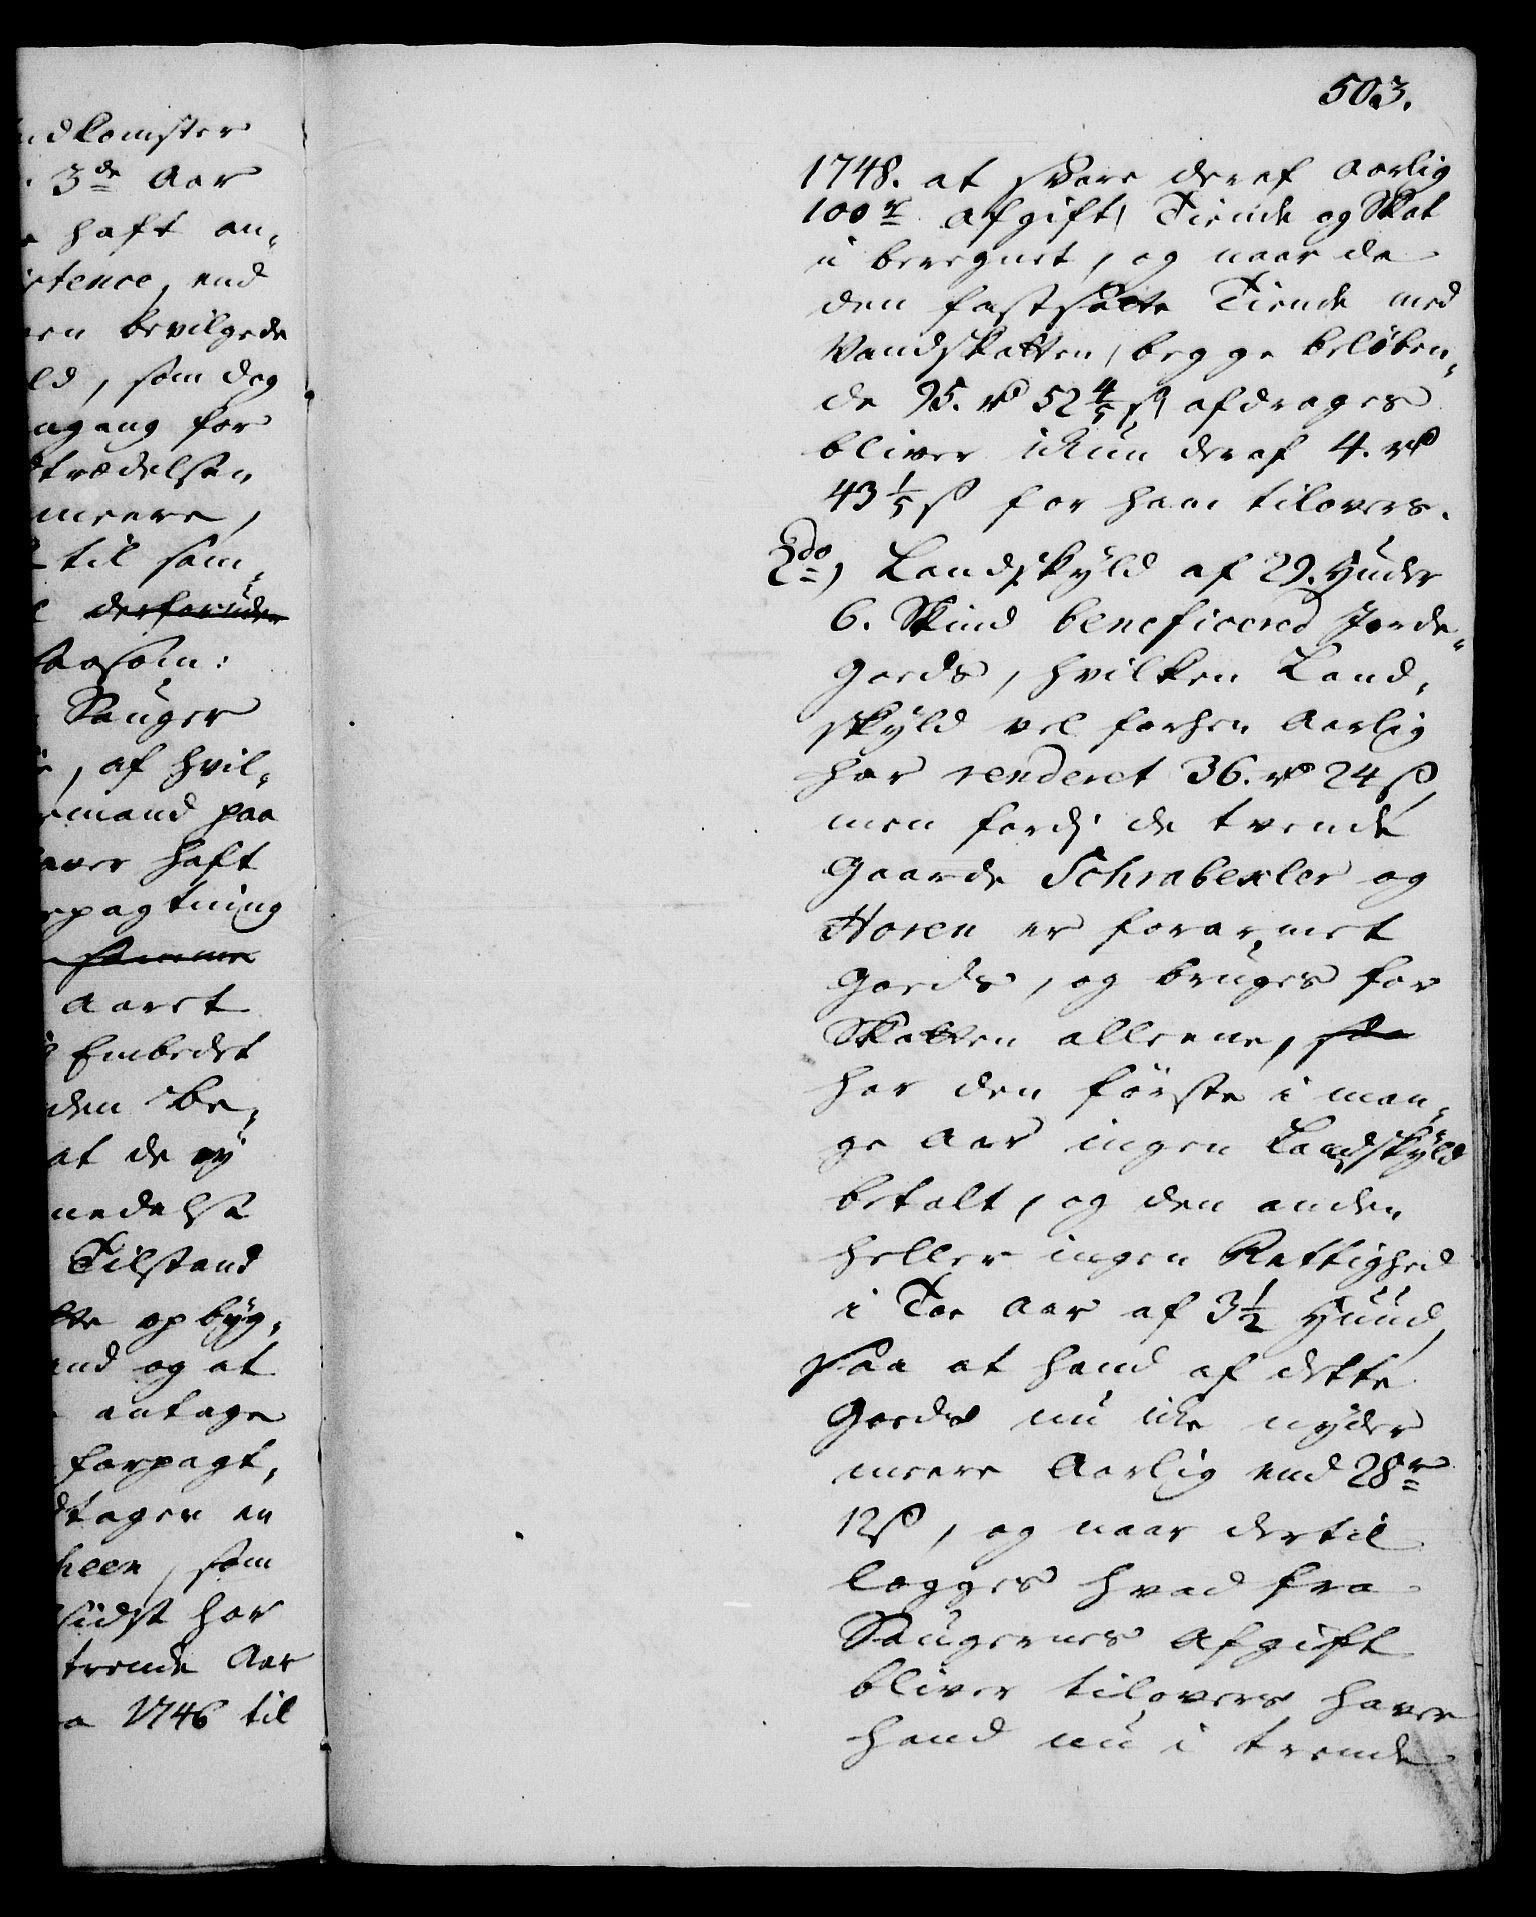 ndkomster
3de Aar
haft an,
stence, end
en bevilgede
ld, som dog
ngang for
trædelsen
meere,
til som,
derforuden
saasom:
Sauger
, af hvil,
mand paa
aver haft
rpagtning
samme
Aaret
Embedet
den be,
at de ey
nedelse
Tilstand
te opbyg,
and og at
antage
forpagt,
tagen en
heen, som
sidst har
trende Aar
a 1746 til
503.
1748. at svare deraf aarlig
100 r afgift, Tiende og Skat
i beregnet, og naar da
den fastsatte Tiende med
Vandskatten, begge beløben,
de 95. rd 52 4/5 s, afdrages
bliver ikun deraf 4. rd
43 1/5 s for ham tilovers.
2do) Landskyld af 29. Huder
6. Skind beneficered Jorde,
Goeds, hvilken Land,
skyld vel forhen Aarlig
har renderet 36. rd 24 s,
men fordj de tvende
Gaarde Schrabekler og
Horen er forarmet
Goeds, og bruges for
Skatten alleene, saa
har den første i man,
ge Aar ingen Landskyld
betalt, og den anden
heller ingen Rettighed
i Toe Aar af 3 1/2 Huud,
saa at hand af dette
Goeds nu ikke nyder
meere Aarlig end 28 r
12 s, og naar dertil
legges hvad fra
Saugernes Afgift
bliver tilovers, haver
hand nu i trende